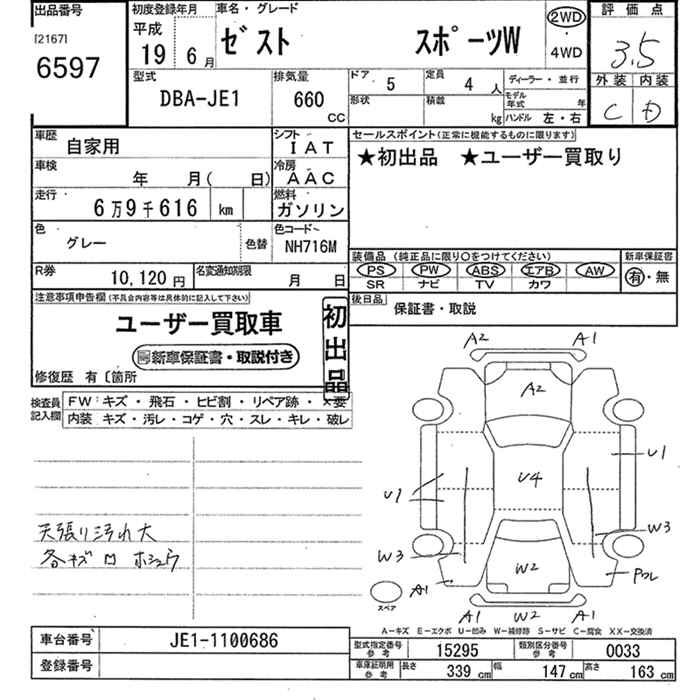 出品番号 初度登録年月 車名・グレード 評価点
[2167] 平成 ゼスト スポーツW 2WD・4WD 3.5
6597 19年 6月 外装 内装
C D
型式 排気量 ドア 5 定員 4人 ディーラー・並行
DBA-JE1 660CC 形状 積載 kg モデル年式 年
ハンドル 左・右
車歴 自家用 シフト IAT セールスポイント(正常に機能するものに限ります)
車検 年 月( 日) 冷房 AAC ★初出品 ★ユーザー買取り
走行 6万9千616 km 燃料 ガソリン
色 グレー 色替 色コード NH716M 装備品(純正品に限り○をつけてください) 新車保証書
PS PW ABS エアB AW 有・無
R券 10,120円 名変通知期限 月 日 SR ナビ TV カワ
注意事項申告欄(不具合内容等は具体的に記入して下さい) 後日品 保証書・取説
ユーザー買取車 初出品
新車保証書・取説付き
修復歴 有〔箇所
検査員記入欄 FW:キズ・飛石・ヒビ割・リペア跡・×要
内装 キズ・汚レ・コゲ・穴・スレ・キレ・破レ
A2 A1
A2
U1
U4
U1
W3
W3
天張り汚れ大
各キズ凹
W2
A1
スペア A1 W2 A1
A-キズ E-エクボ U-凹み W-補修跡 S-サビ C-腐食 XX-交換済
車台番号 JE1-1100686 型式指定番号 参考 15295 類別区分番号 参考 0033
登録番号 車庫証明用 参考 長さ 339cm 幅 147cm 高さ 163cm